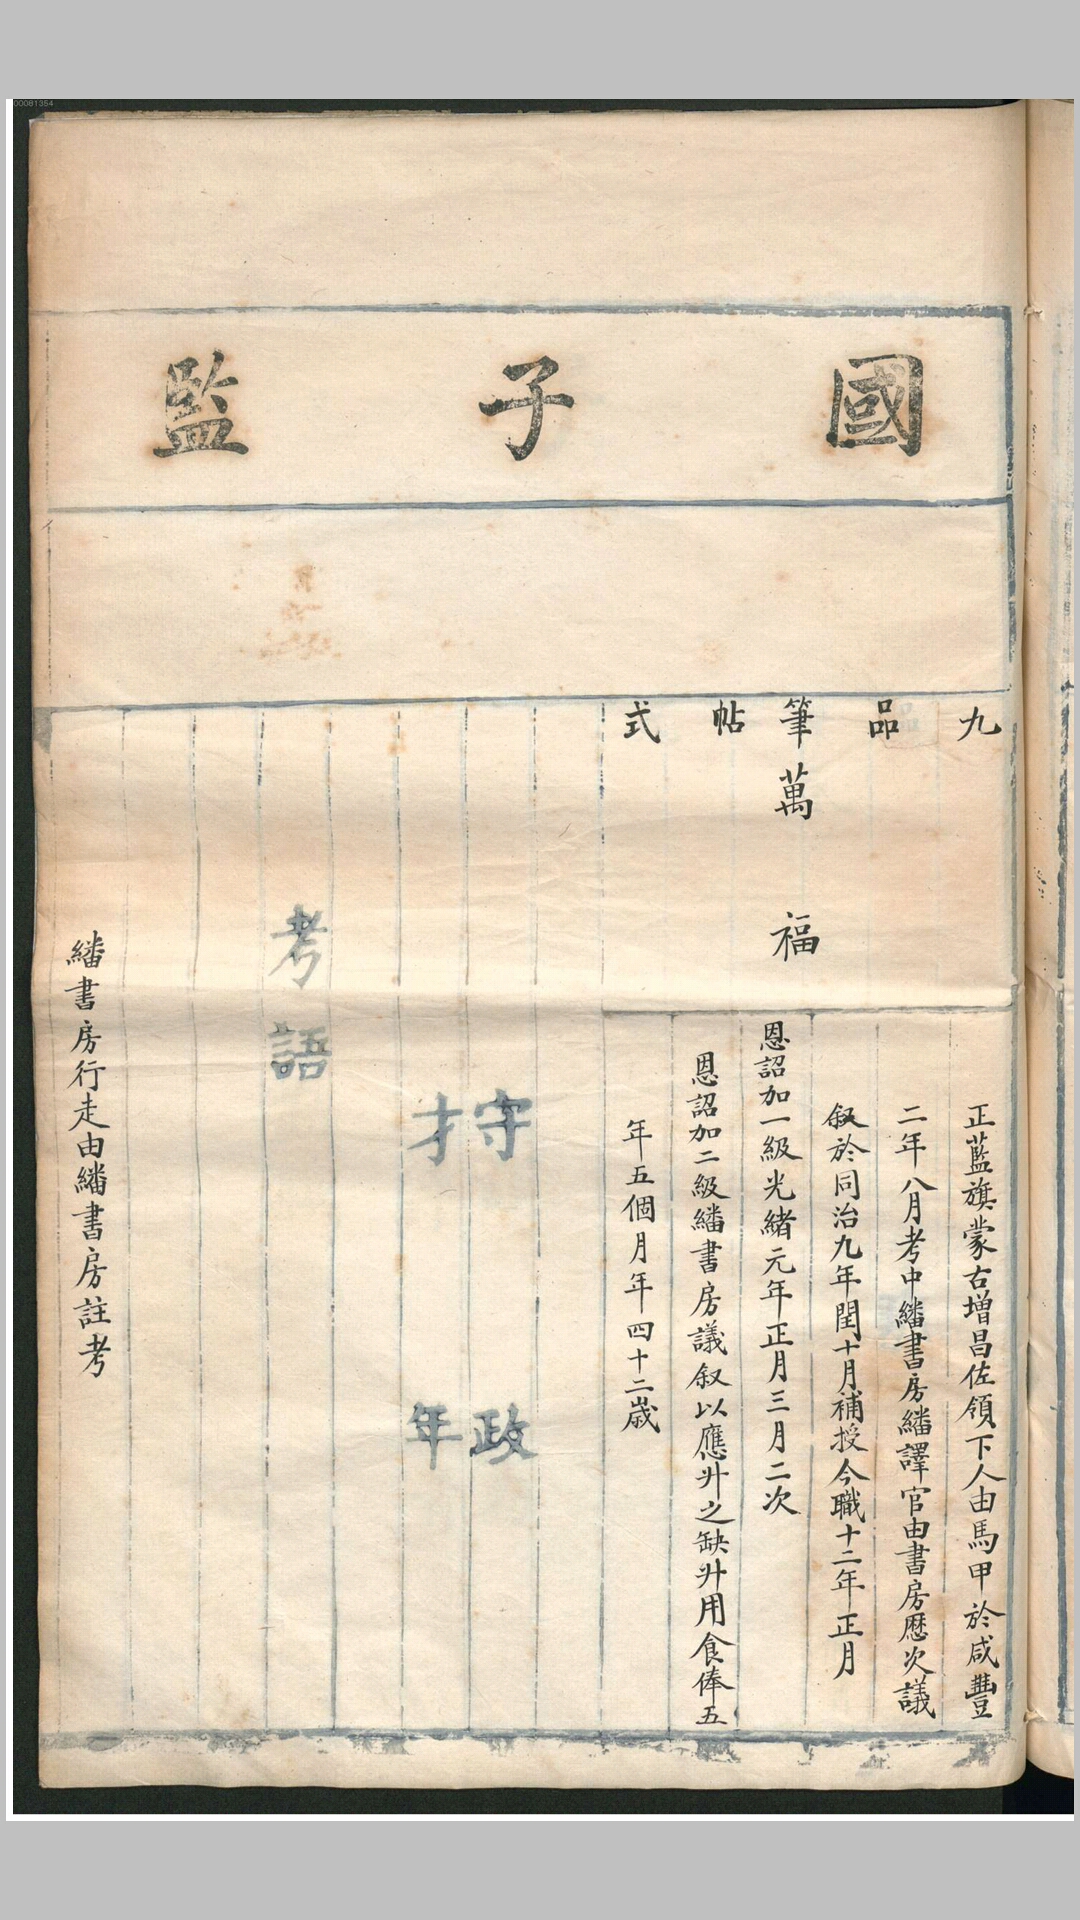 00081354
國子監
九品筆帖式
萬福
正藍旗蒙古增昌佐領下人由馬甲於咸豐
二年八月考中繙書房繙譯官由書房歷次議
叙於同治九年閏十月補授今職十二年正月
恩詔加一級光緒元年正月三月二次
恩詔加二級繙書房議叙以應升之缺升用食俸五
年五個月年四十二歲
守政
才年
考語
繙書房行走由繙書房註考